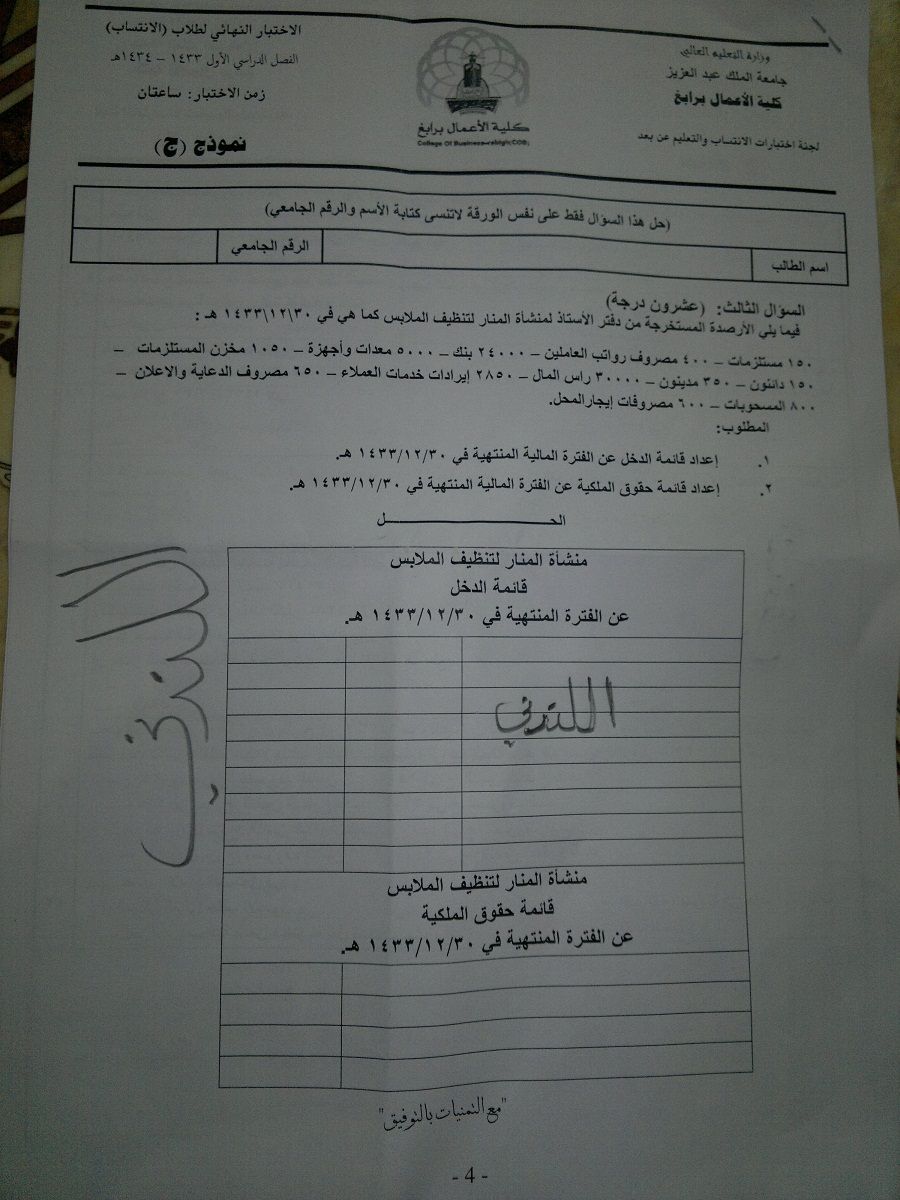 وزارة التعليم العالي
جامعة الملك عبد العزيز
كلية الأعمال برابغ
لجنة اختبارات الانتساب والتعليم عن بعد
كلية الأعمال برابغ
College Of Business-rabigh(COB)
الاختبار النهائي لطلاب (الانتساب)
الفصل الدراسي الأول ١٤٣٣ - ١٤٣٤هـ
زمن الاختبار: ساعتان
نموذج (ج)
(حل هذا السؤال فقط على نفس الورقة لاتنسى كتابة الأسم والرقم الجامعي)
اسم الطالب
الرقم الجامعي
السؤال الثالث: (عشرون درجة)
فيما يلي الأرصدة المستخرجة من دفتر الأستاذ لمنشأة المنار لتنظيف الملابس كما هي في ١٤٣٣\١٢\٣٠ هـ :
١٥٠ مستلزمات – ٤٠٠ مصروف رواتب العاملين – ٢٤٠٠٠ بنك – ٥٠٠٠ معدات وأجهزة – ١٠٥٠ مخزن المستلزمات –
١٥٠ دائنون – ٣٥٠ مدينون – ٣٠٠٠٠ راس المال – ٢٨٥٠ إيرادات خدمات العملاء – ٦٥٠ مصروف الدعاية والاعلان –
٨٠٠ المسحوبات – ٦٠٠ مصروفات إيجارالمحل.
المطلوب:
١. إعداد قائمة الدخل عن الفترة المالية المنتهية في ١٤٣٣/١٢/٣٠ هـ.
٢. إعداد قائمة حقوق الملكية عن الفترة المالية المنتهية في ١٤٣٣/١٢/٣٠ هـ.
الحــــــــــــــــــل
منشأة المنار لتنظيف الملابس
قائمة الدخل
عن الفترة المنتهية في ١٤٣٣/١٢/٣٠ هـ.
منشأة المنار لتنظيف الملابس
قائمة حقوق الملكية
عن الفترة المنتهية في ١٤٣٣/١٢/٣٠ هـ.
"مع التمنيات بالتوفيق"
- 4 -